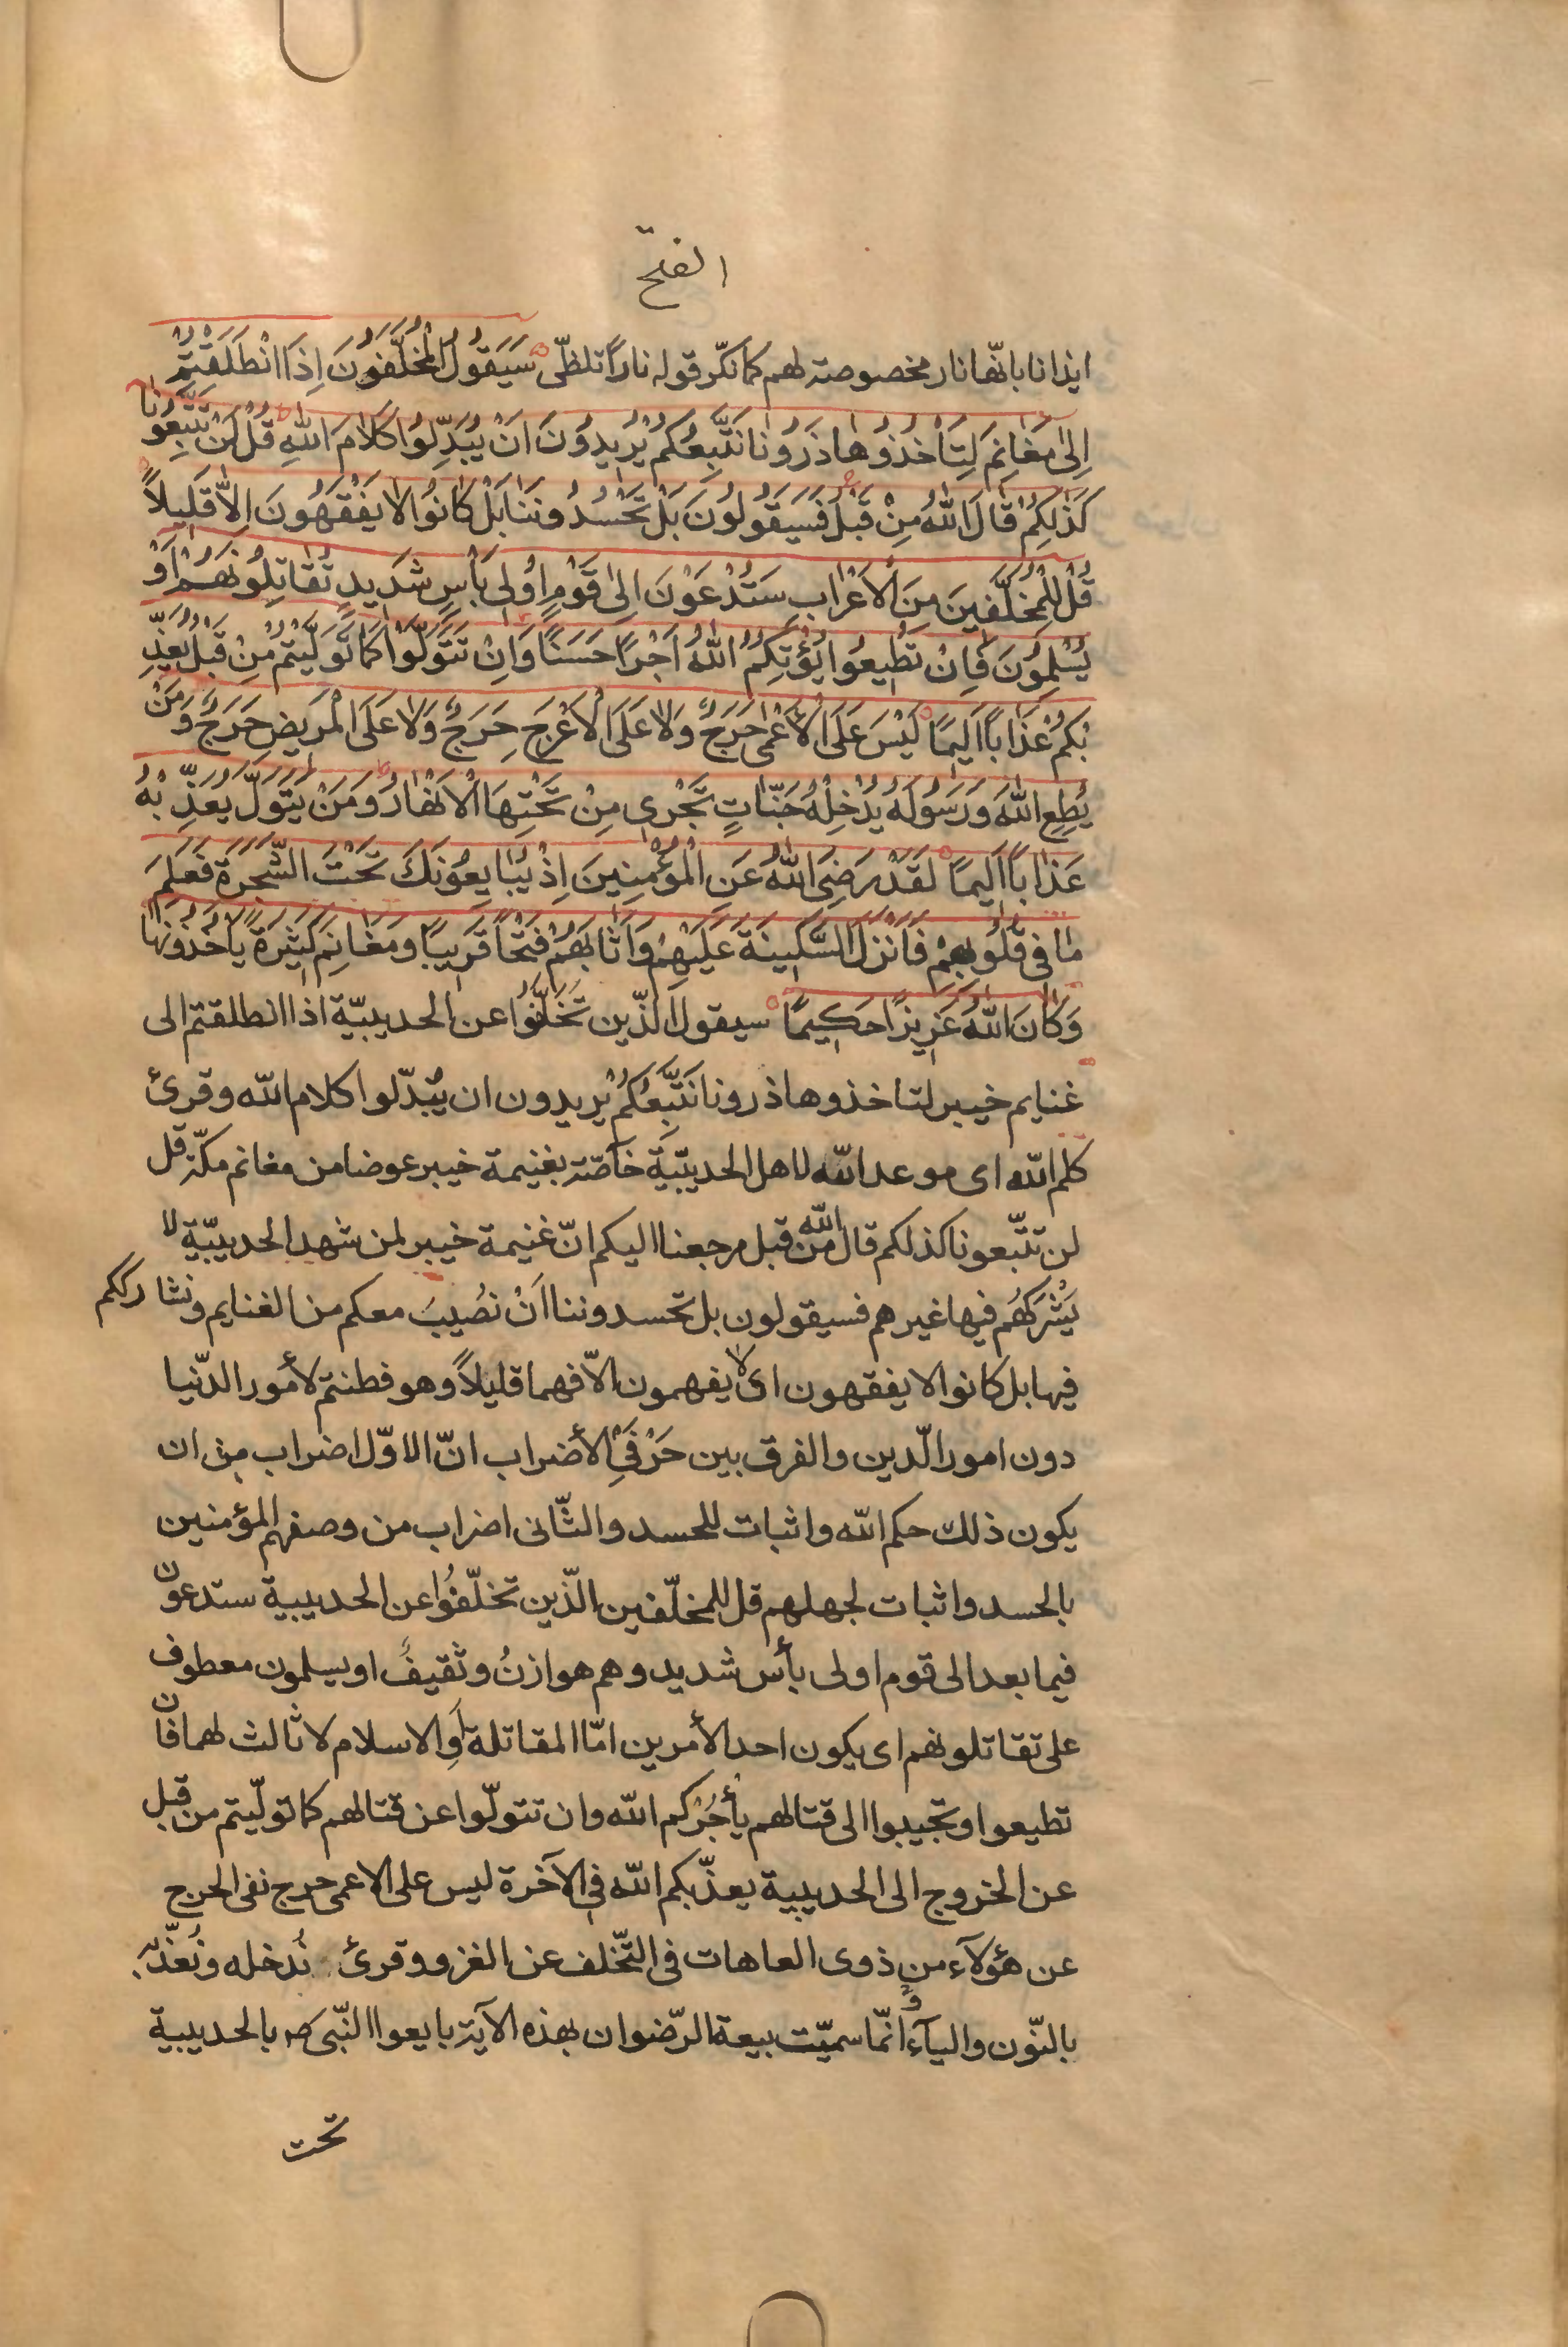 الفتح
ايذانا بانّها نار مخصوصة لهم كما نكّر قوله ناراً تلظّى سَيَقُولُ الْمُخَلَّفُونَ اِذَا انْطَلَقْتُمْ
اِلىٰ مَغٰانِمَ لِتَأْخُذُوهٰا ذَرُونٰا نَتَّبِعْكُمْ يُرِيدُونَ اَنْ يُبَدِّلُوا كَلٰامَ اللّٰهِ قُلْ لَنْ تَتَّبِعُونٰا
كَذٰلِكُمْ قٰالَ اللّٰهُ مِنْ قَبْلُ فَسَيَقُولُونَ بَلْ تَحْسُدُونَنٰا بَلْ كٰانُوا لٰا يَفْقَهُونَ اِلّٰا قَلِيلاً
قُلْ لِلْمُخَلَّفِينَ مِنَ الْاَعْرٰابِ سَتُدْعَوْنَ اِلىٰ قَوْمٍ اُولِى بَأْسٍ شَدِيدٍ تُقٰاتِلُونَهُمْ اَوْ
يُسْلِمُونَ فَاِنْ تُطِيعُوا يُؤْتِكُمُ اللّٰهُ اَجْرًا حَسَنًا وَاِنْ تَتَوَلَّوْا كَمٰا تَوَلَّيْتُمْ مِنْ قَبْلُ يُعَذِّ
بْكُمْ عَذٰاباً اَلِيمًا لَيْسَ عَلَى الْاَعْمىٰ حَرَجٌ وَلٰا عَلَى الْاَعْرَجِ حَرَجٌ وَلٰا عَلَى الْمَرِيضِ حَرَجٌ وَمَنْ
يُطِعِ اللّٰهَ وَرَسُولَهُ يُدْخِلْهُ جَنّٰاتٍ تَجْرِى مِنْ تَحْتِهَا الْاَنْهٰارُ وَمَنْ يَتَوَلَّ يُعَذِّبْهُ
عَذٰاباً اَلِيمًا لَقَدْ رَضِىَ اللّٰهُ عَنِ الْمُؤْمِنِينَ اِذْ يُبٰايِعُونَكَ تَحْتَ الشَّجَرَةِ فَعَلِمَ
مٰا فِى قُلُوبِهِمْ فَاَنْزَلَ السَّكِينَةَ عَلَيْهِمْ وَاَثٰابَهُمْ فَتْحاً قَرِيبًا وَمَغٰانِمَ كَثِيرَةً يَأْخُذُونَهٰا
وَكٰانَ اللّٰهُ عَزِيزًا حَكِيمًا سيقول الّذين تَخَلَّفُوا عن الحديبيّة اذا انطلقتم الى
غنايم خيبر لتاخذوها ذرونا نَتَّبِعْكُمْ يريدون ان يُبدّلوا كلام اللّه وقرئ
كلم اللّه اى موعد اللّه لاهل الحديبيّة خاصّة بغنيمة خيبر عوضا من مغانم مكّة قل
لن تتّبعونا كذلكم قال اللّه من قبل مرجعنا اليكم انّ غنيمة خيبر لمن شهد الحديبيّة لا
يَشْرَكُهُم فيها غيرهم فسيقولون بل تحسدوننا اَنْ نصُيبَ معكم من الغنايم ونشارككم
فيها بل كانوا لا يفقهون اى لا يفهمون الّا فهما قليلاً وهو فطنتم لأمور الدّنيا
دون امور الّدين والفرق بين حَرْفَيِ الأضراب انّ الاوّل اضراب من ان
يكون ذلك حكم اللّه واثبات للحسد والثّانى اضراب من وصفهم المؤمنين
بالحسد واثبات لجهلهم قل للمخلّفين الّذين تخلّفُوا عن الحديبية ستدعون
فيما بعد الى قوم اولى بأس شديد وهم هوازنُ وثقيفُ او يسلمون معطوف
على تقاتلونهم اى يكون احد الأمرين امّا المقاتلة اَوِ الاسلام لا ثالث لهما فان
تطيعوا وتجيبوا الى قتالهم يأجُرْكم اللّه وان تتولّوا عن قتالهم كما تولّيتم من قبل
عن الخروج الى الحديبية يعذّبكم اللّه فى الآخرة ليس على الاعمى حرج نفى الحرج
عن هؤلآء من ذوى العاهات فى التّخلف عن الغزو وقرئ نُدخله ونُعذّبه
بالنّون واليآء وانّما سميّت بيعة الرّضوان بهذه الآية بايعوا النّبى ص بالحديبية
تحت